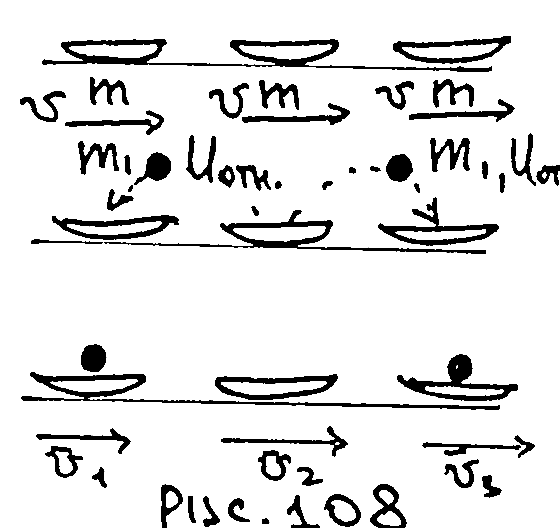 v m v m v m
m₁ Uотн. m₁, Uот
v₁ v₂ v₃
Рис. 108